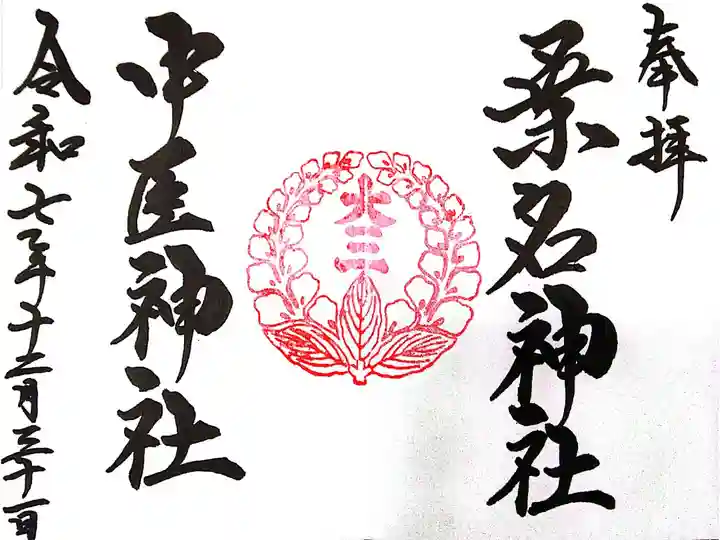 奉拝
桒名神社
大三
中臣神社
令和七年十二月三十一日